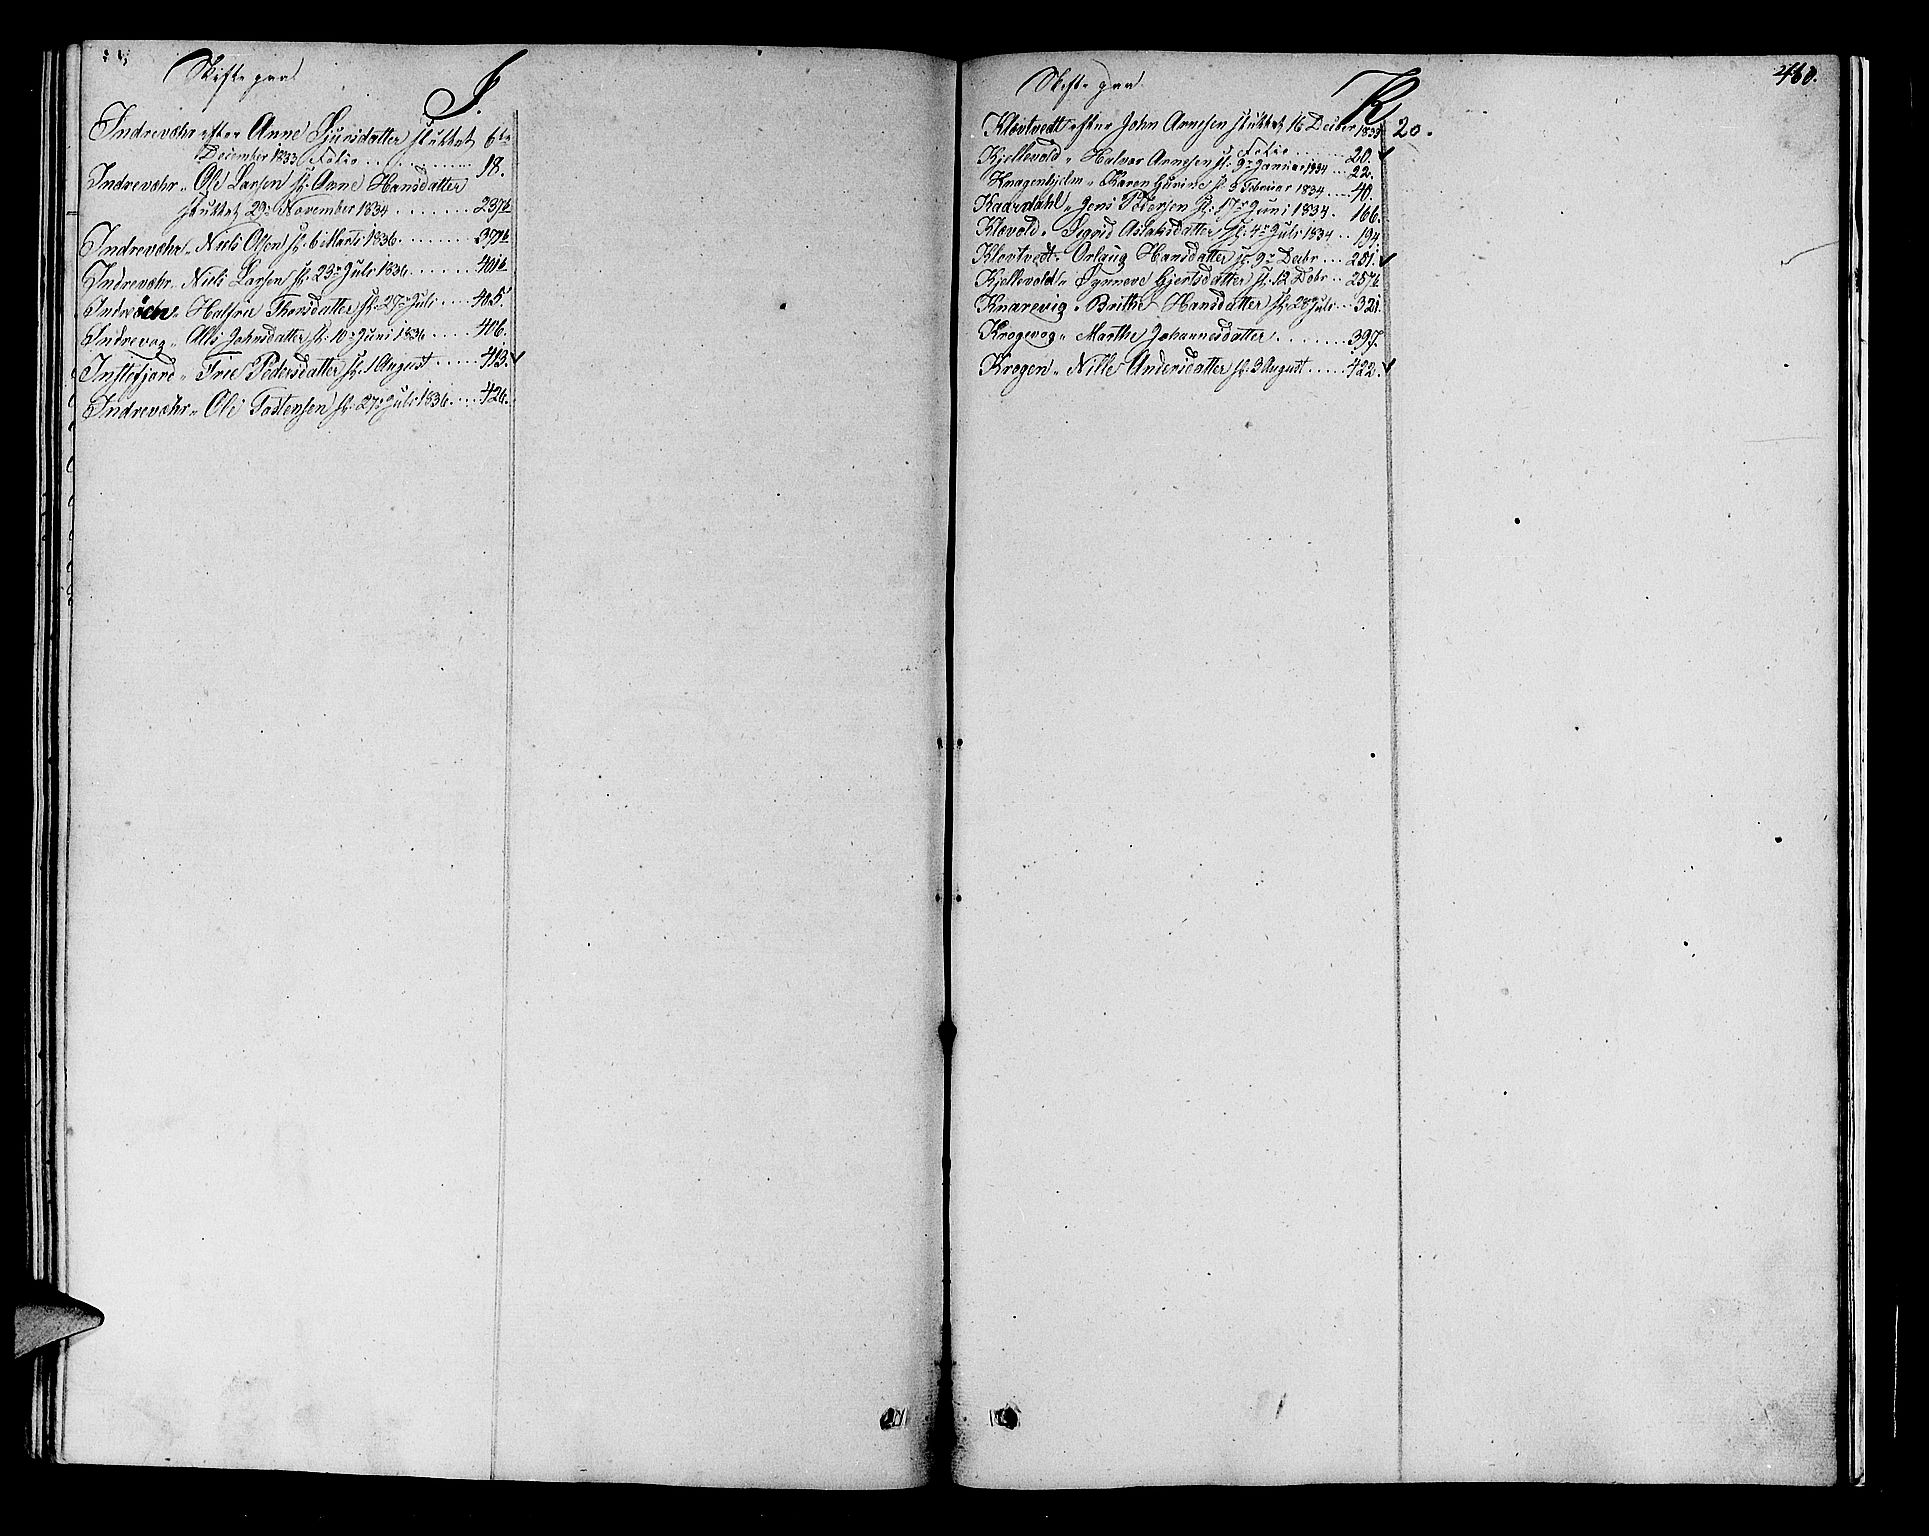 Skifte paa
I.
Indrevæhr efter Anne Sjursdatter sluttet 6te
December 1833 Folio 18.
Indrevæhr „ Ole Larsen sl. Anne Hansdatter
sluttet 29 November 1834 237b
Indrevæhr „ Niels Olsen sl. 6 Marti 1836. 377b
Indrevæhr „ Niels Larsen sl. 23r Juli 1836 401b
Halfrie Thorsdatter sl. 27r Juli 405.
Indrevog „ Alis Johnsdatter sl. 10r Juni 1836 406.
Instefjord „ Frie Pedersdatter sl. 1 August 413.
Indrevæhr „ Ole Tostensen sl. 27r Juli 1836 426.
Skifte paa
K
460.
Kløvtvedt efter John Arnesen sluttet 16 Decber 1833 20.
Folio 20.
Kjellevold „ Halvor Arnesen sl. 9r Januar 1834 22.
Knagenhjelm „ Karen Gurine sl. 8 Februar 1834 40.
Kaardahl „ Jens Pedersen sl. 17r Juni 1834. 166.
Klævold „ Sigrid Aslaksdatter sl. 4r Juli 1834 194.
Kløvtvedt „ Orlaug Hansdatter sl. 9r Decbr 251.
Kjellevold „ Synneve Gjertsdatter sl. 12 Decbr 257b
Knarevig „ Brithe Hansdatter sl. 28 Juli 321.
Krogevog „ Marthe Johannesdatter 397.
Krogen „ Nille Andersdatter sl. 3 August 422.